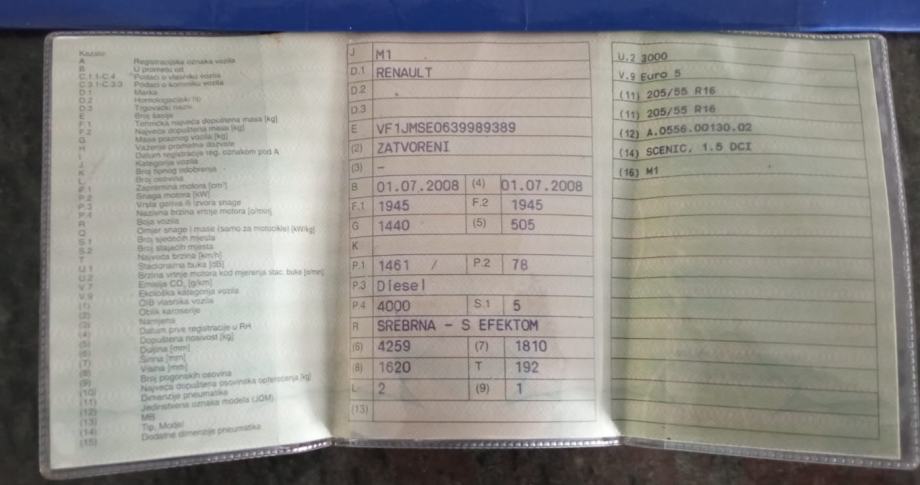 Kazalo:
A Registracijska oznaka vozila
B U prometu od
C.1.1-C.4 Podaci o vlasniku vozila
C.3.1-C.3.3 Podaci o korisniku vozila
D.1 Marka
D.2 Homologacijski tip
D.3 Trgovački naziv
E Broj šasije
F.1 Tehnička najveća dopuštena masa [kg]
F.2 Najveća dopuštena masa [kg]
G Masa praznog vozila [kg]
H Važenje prometne dozvole
I Datum registracije reg. oznakom pod A
J Kategorija vozila
K Broj tipnog odobrenja
L Broj osovina
P.1 Zapremina motora [cm³]
P.2 Snaga motora [kW]
P.3 Vrsta goriva ili izvora snage
P.4 Nazivna brzina vrtnje motora [o/min]
R Boja vozila
Q Omjer snage i mase (samo za motocikle) [kW/kg]
S.1 Broj sjedećih mjesta
S.2 Broj stajaćih mjesta
T Najveća brzina [km/h]
U.1 Stacionarna buka [dB]
U.2 Brzina vrtnje motora kod mjerenja stac. buke [o/min]
V.7 Emisija CO₂ [g/km]
V.9 Ekološka kategorija vozila
(1) OIB vlasnika vozila
(2) Oblik karoserije
(3) Namjena
(4) Datum prve registracije u RH
(5) Dopuštena nosivost [kg]
(6) Duljina [mm]
(7) Širina [mm]
(8) Visina [mm]
(9) Broj pogonskih osovina
(10) Najveća dopuštena osovinska opterećenja [kg]
(11) Dimenzije pneumatika
(12) Jedinstvena oznaka modela (JOM)
(13) MB
(14) Tip, Model
(15) Dodatne dimenzije pneumatika
J M1
D.1 RENAULT
D.2
D.3
E VF1JMSE0639989389
(2) ZATVORENI
(3) –
B 01.07.2008 (4) 01.07.2008
F.1 1945 F.2 1945
G 1440 (5) 505
K
P.1 1461 / P.2 78
P.3 Diesel
P.4 4000 S.1 5
R SREBRNA - S EFEKTOM
(6) 4259 (7) 1810
(8) 1620 T 192
L 2 (9) 1
(13)
U.2 3000
V.9 Euro 5
(11) 205/55 R16
(11) 205/55 R16
(12) A.0556.00130.02
(14) SCENIC, 1.5 DCI
(16) M1